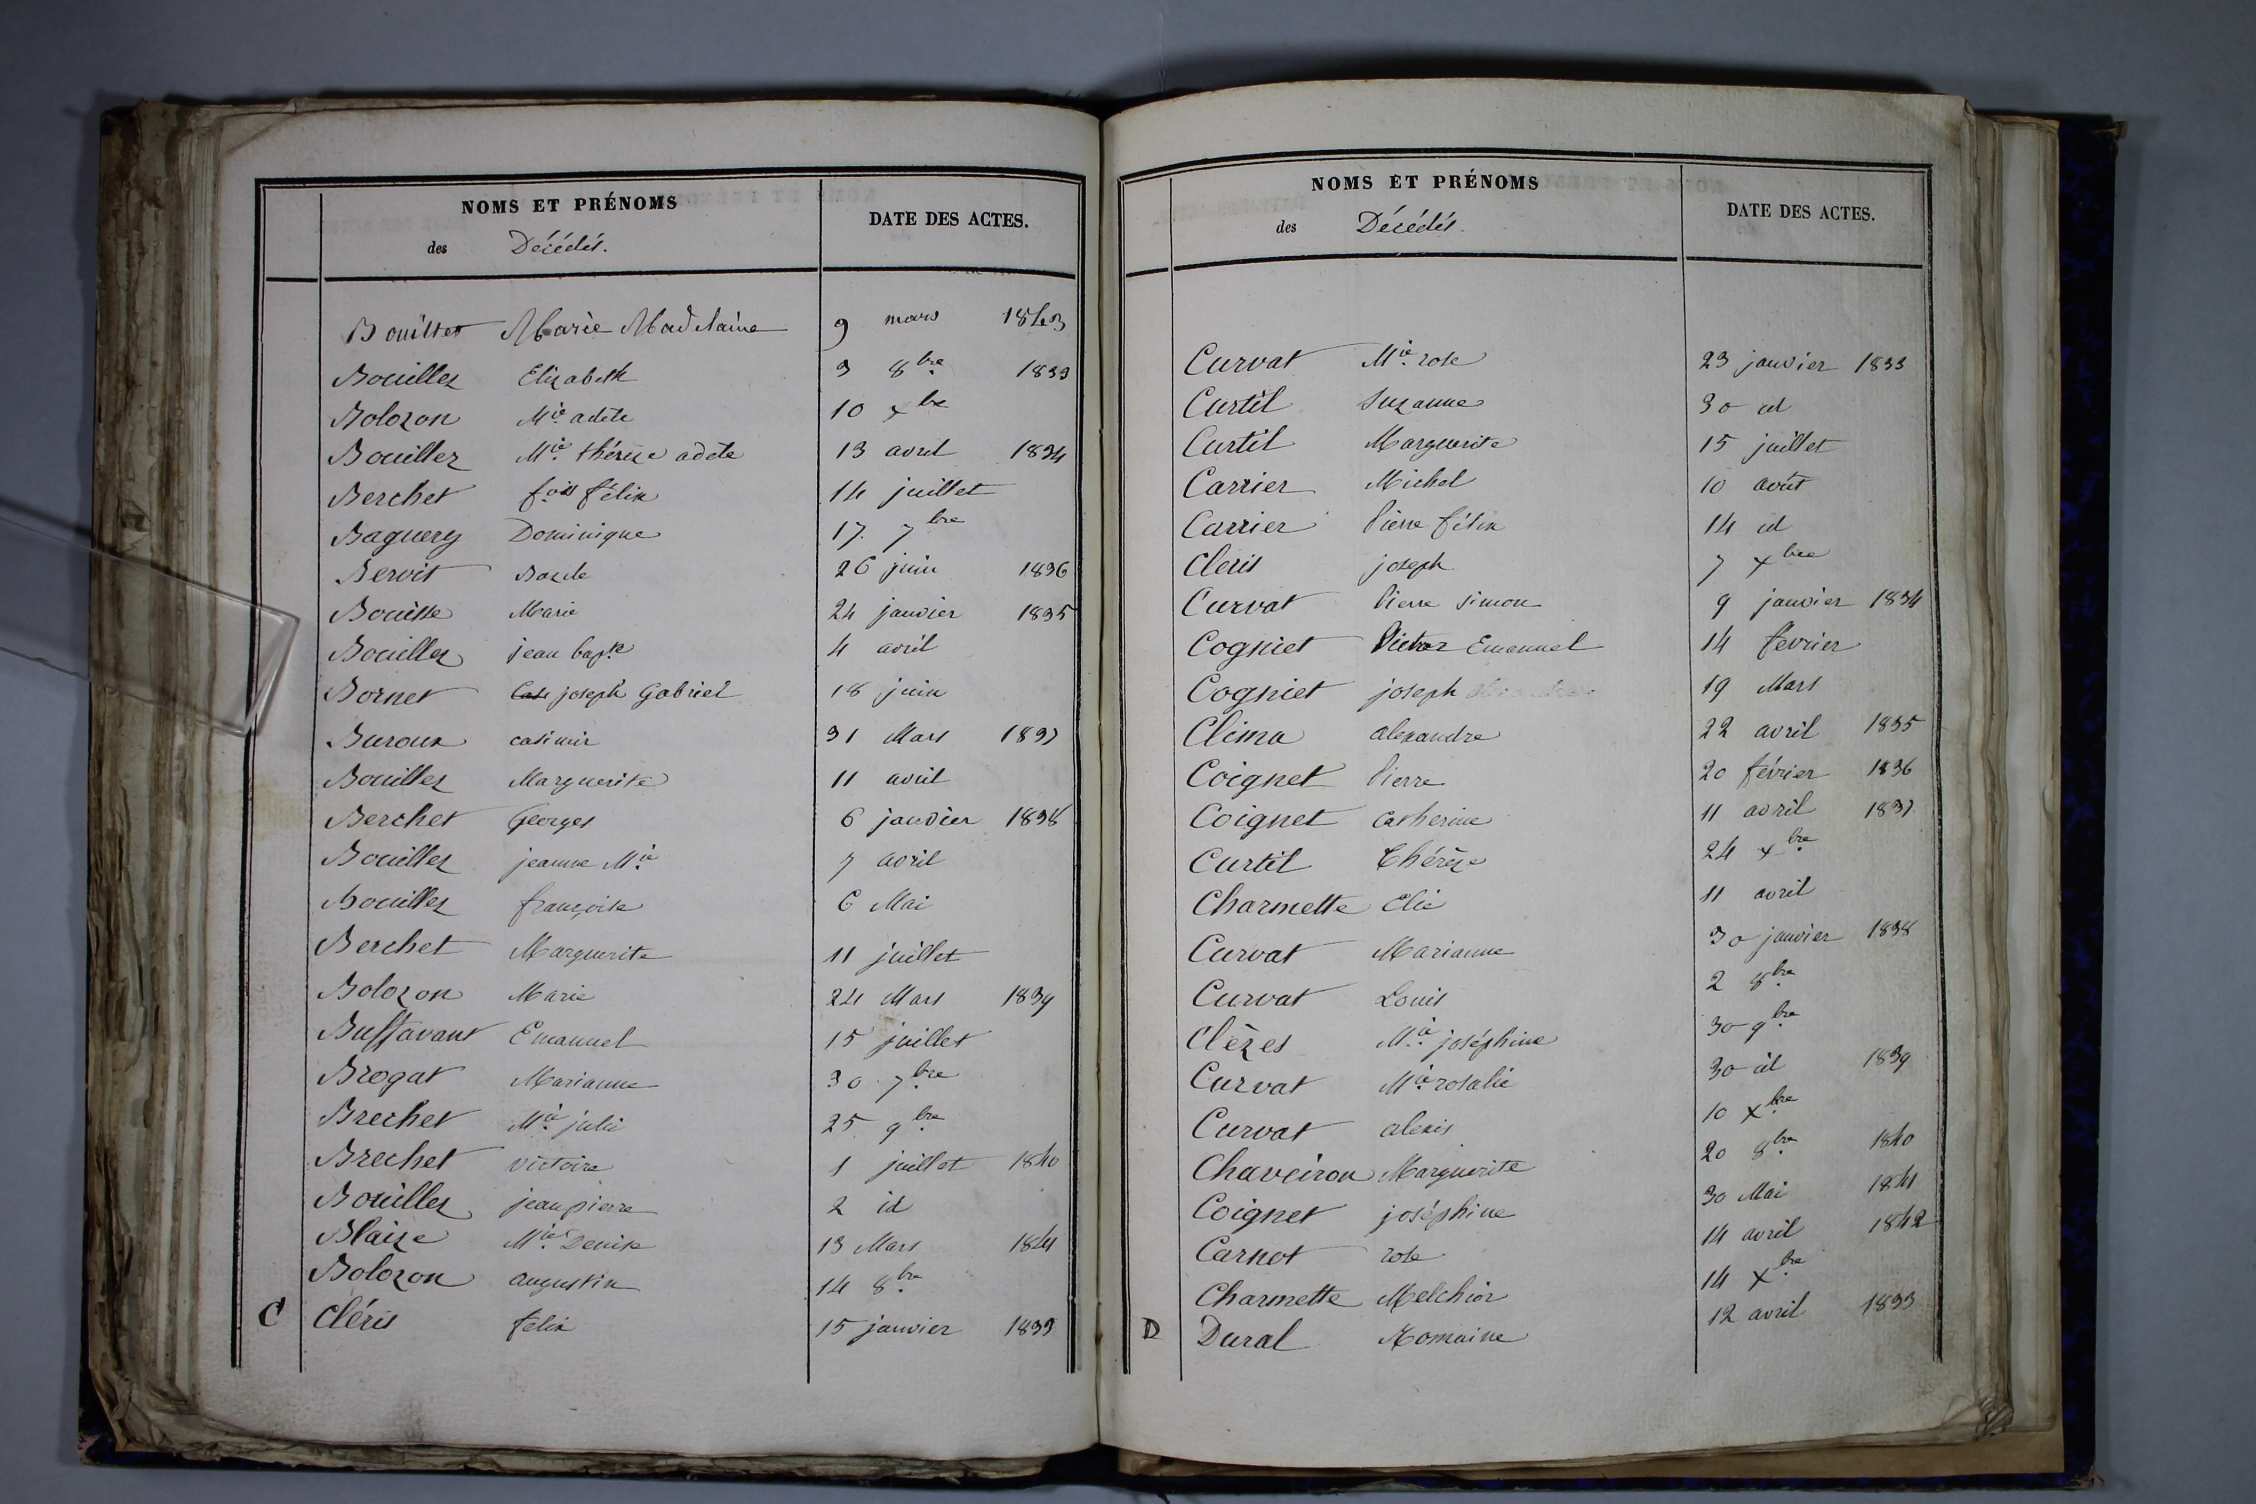 NOMS ET PRÉNOMS
des Décédés.
DATE DES ACTES.
Bouiller Marie Madelaine 9 mars 1843
Bouillez Elizabeth 3 8bre 1833
Bolozon Mie adèle 10 xbre
Bouillez Mie thérèze adèle 13 avril 1834
Berchet fois félix 14 juillet
Baguery Dominique 17. 7bre
Bervit 26 juin 1836
Bouisse Marie 24 janvier 1835
Bouillez jean bapte 4 avril
Bornet joseph Gabriel 18 juin
Buroux casimir 31 Mars 1837
Bouillez Marguerite 11 avril
Berchet Georges 6 janvier 1838
Bouillez jeanne Mie 7 avril
Bouillez françoise 6 Mai
Berchet Marguerite 11 juillet
Bolozon Marie 24 Mars 1839
Buffavant Emanuel 15 juillet
Brogat Marianne 30. 7bre
Brechet Mie julie 25 9bre
Brechet victoire 1 juillet 1840
Bouillez jean pierre 2 id
Blaize Mie Denise 13 Mars 1841
Bolozon augustin 14 8bre
C Cléris félix 15 janvier 1833
NOMS ET PRÉNOMS
des Décédés.
DATE DES ACTES.
Curvat Mie rose 23 janvier 1833
Curtil Suzanne 30 id
Curtil Marguerite 15 juillet
Carrier Michel 10 août
Carrier Pierre félix 14 id
Cleris joseph 7 xbre
Curvat Pierre Simon 9 janvier 1834
Cogniet Victor Emanuel 14 fevrier
Cogniet joseph 19 Mars
Clima alexandre 22 avril 1835
Coignet Pierre 20 février 1836
Coignet Catherine 11 avril 1837
Curtil Thérèze 24 xbre
Charmette Elie 11 avril
Curvat Marianne 30 janvier 1838
Curvat Louis 2 8bre
Clèzes Mie joséphine 30 9bre
Curvat Mie rosalie 30 id 1839
Curvat alexis 10 xbre
Chaveiron Marguerite 20 8bre 1840
Coignet joséphine 30 Mai 1841
Carnot rose 14 avril 1842
Charmette Melchior 14 xbre
D Dural Romaine 12 avril 1833